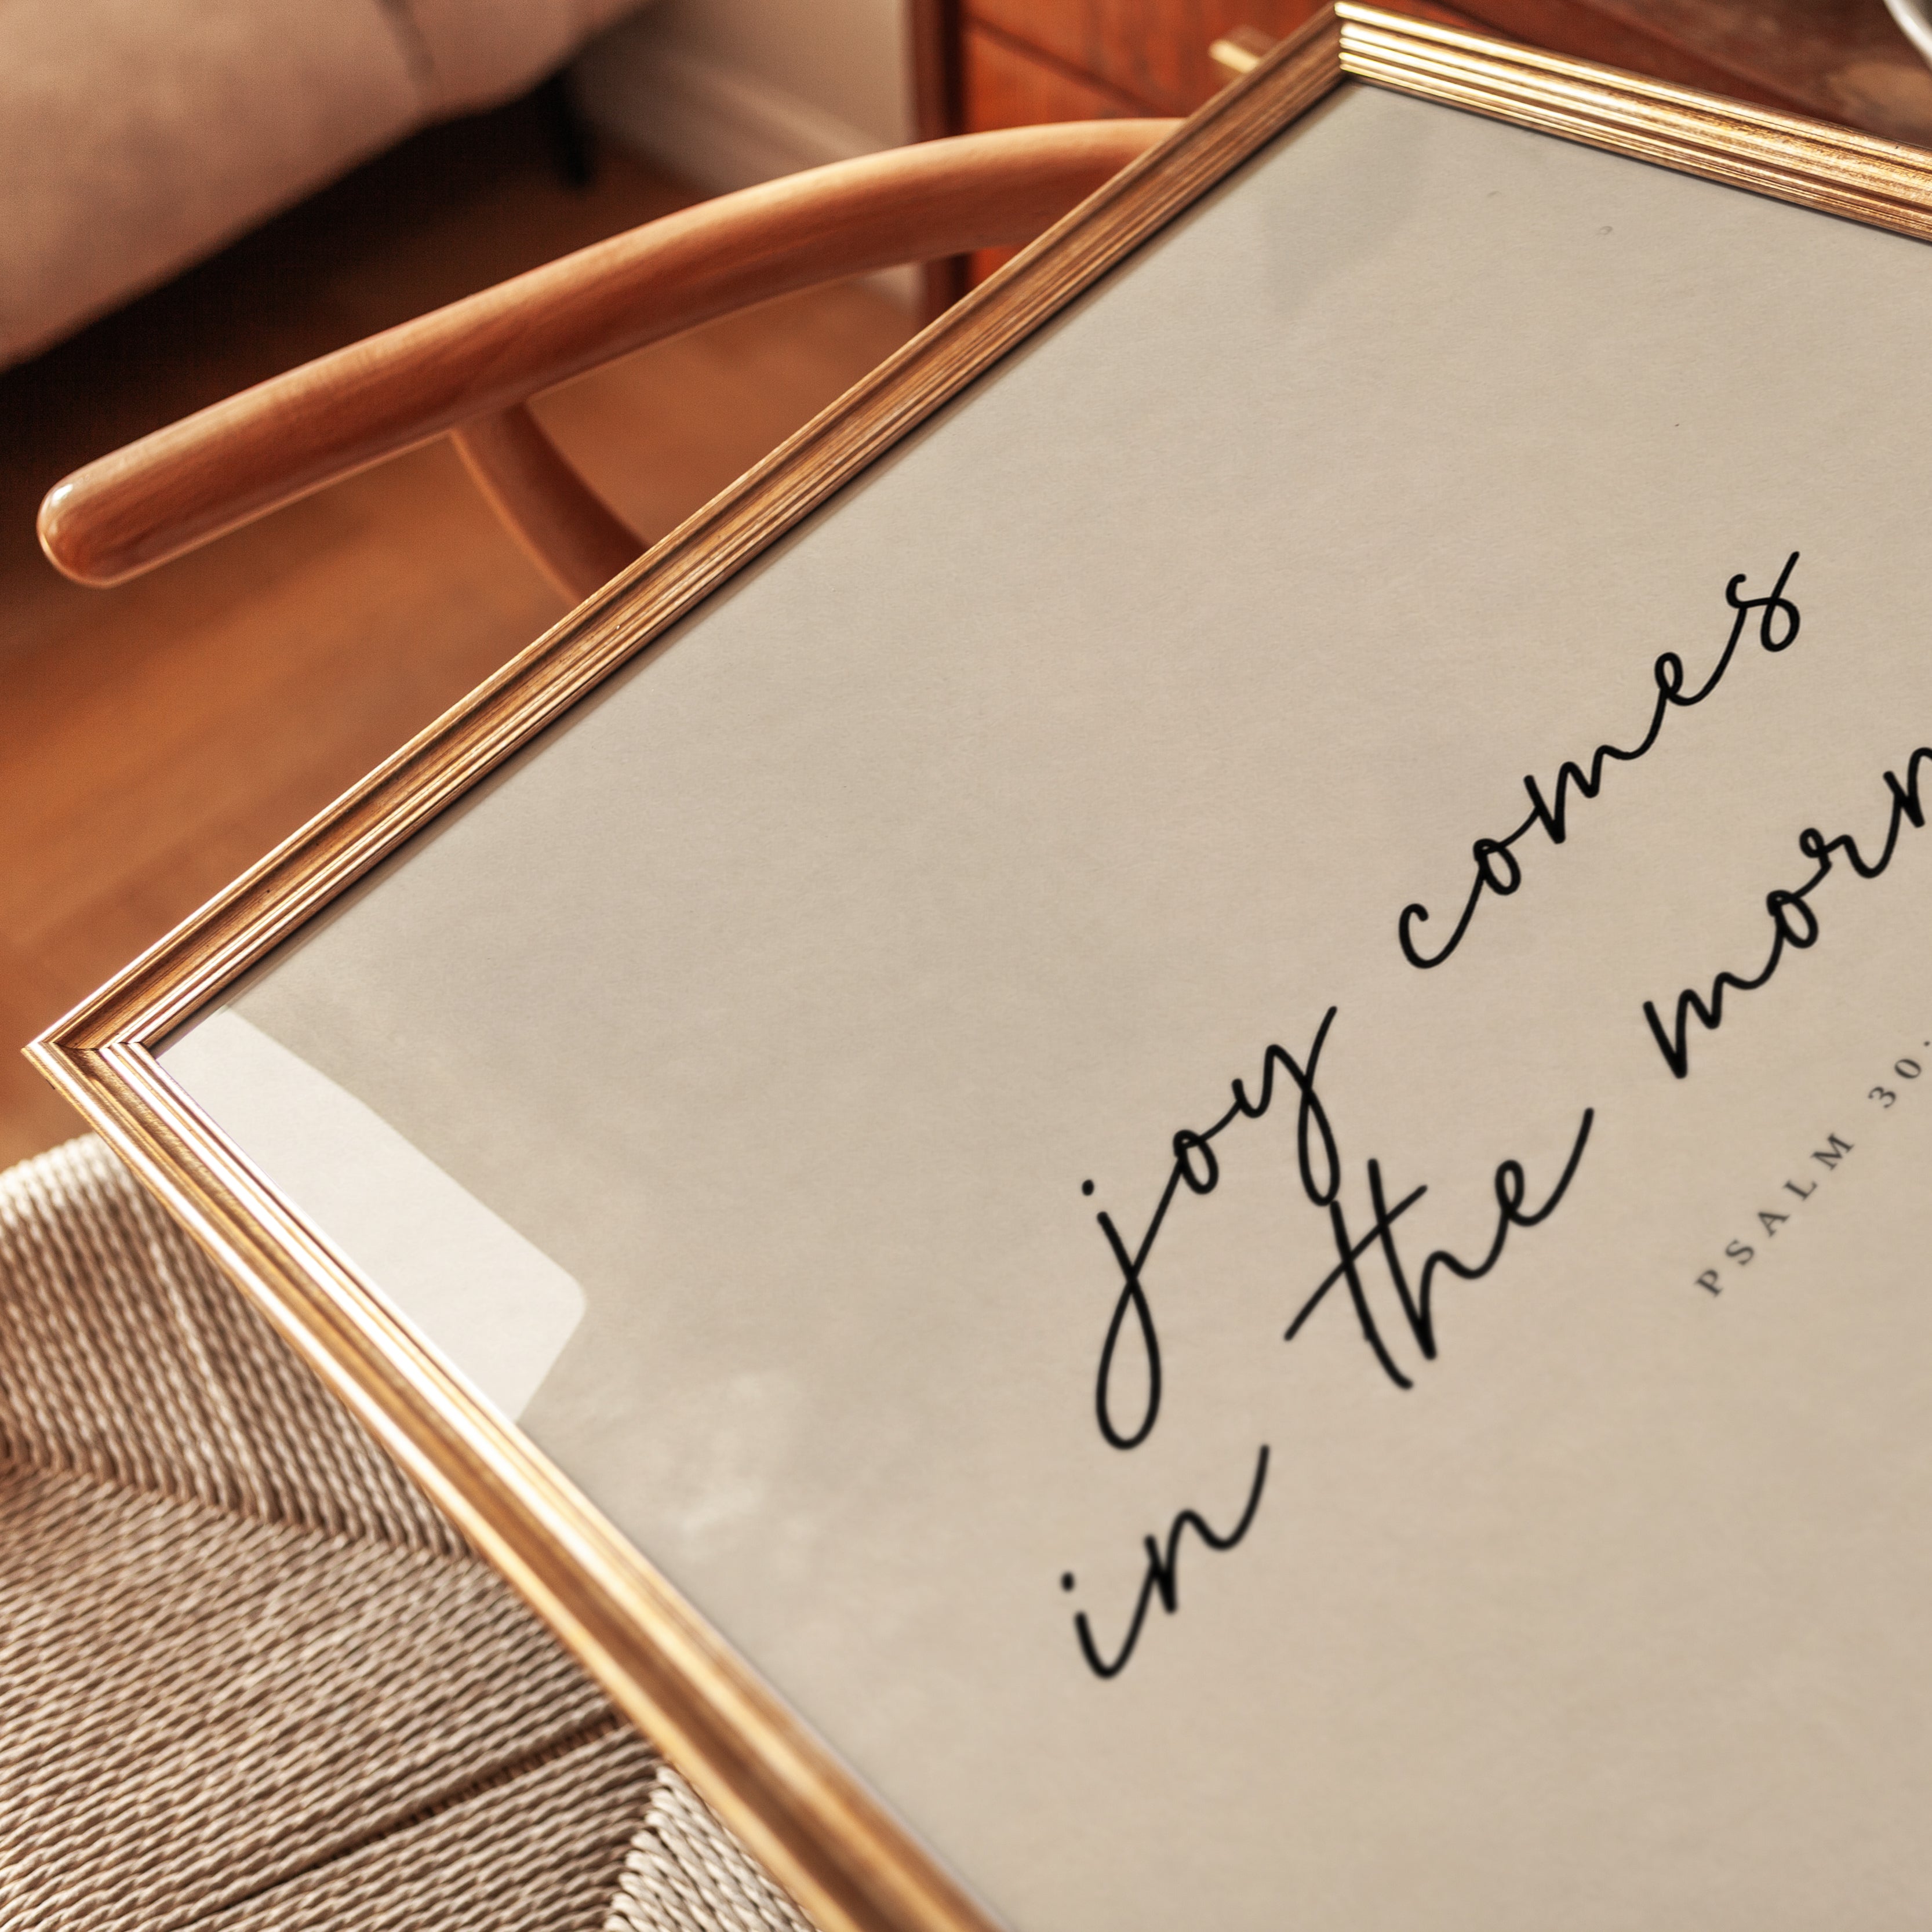 joy comes
in the morn
PSALM 30: